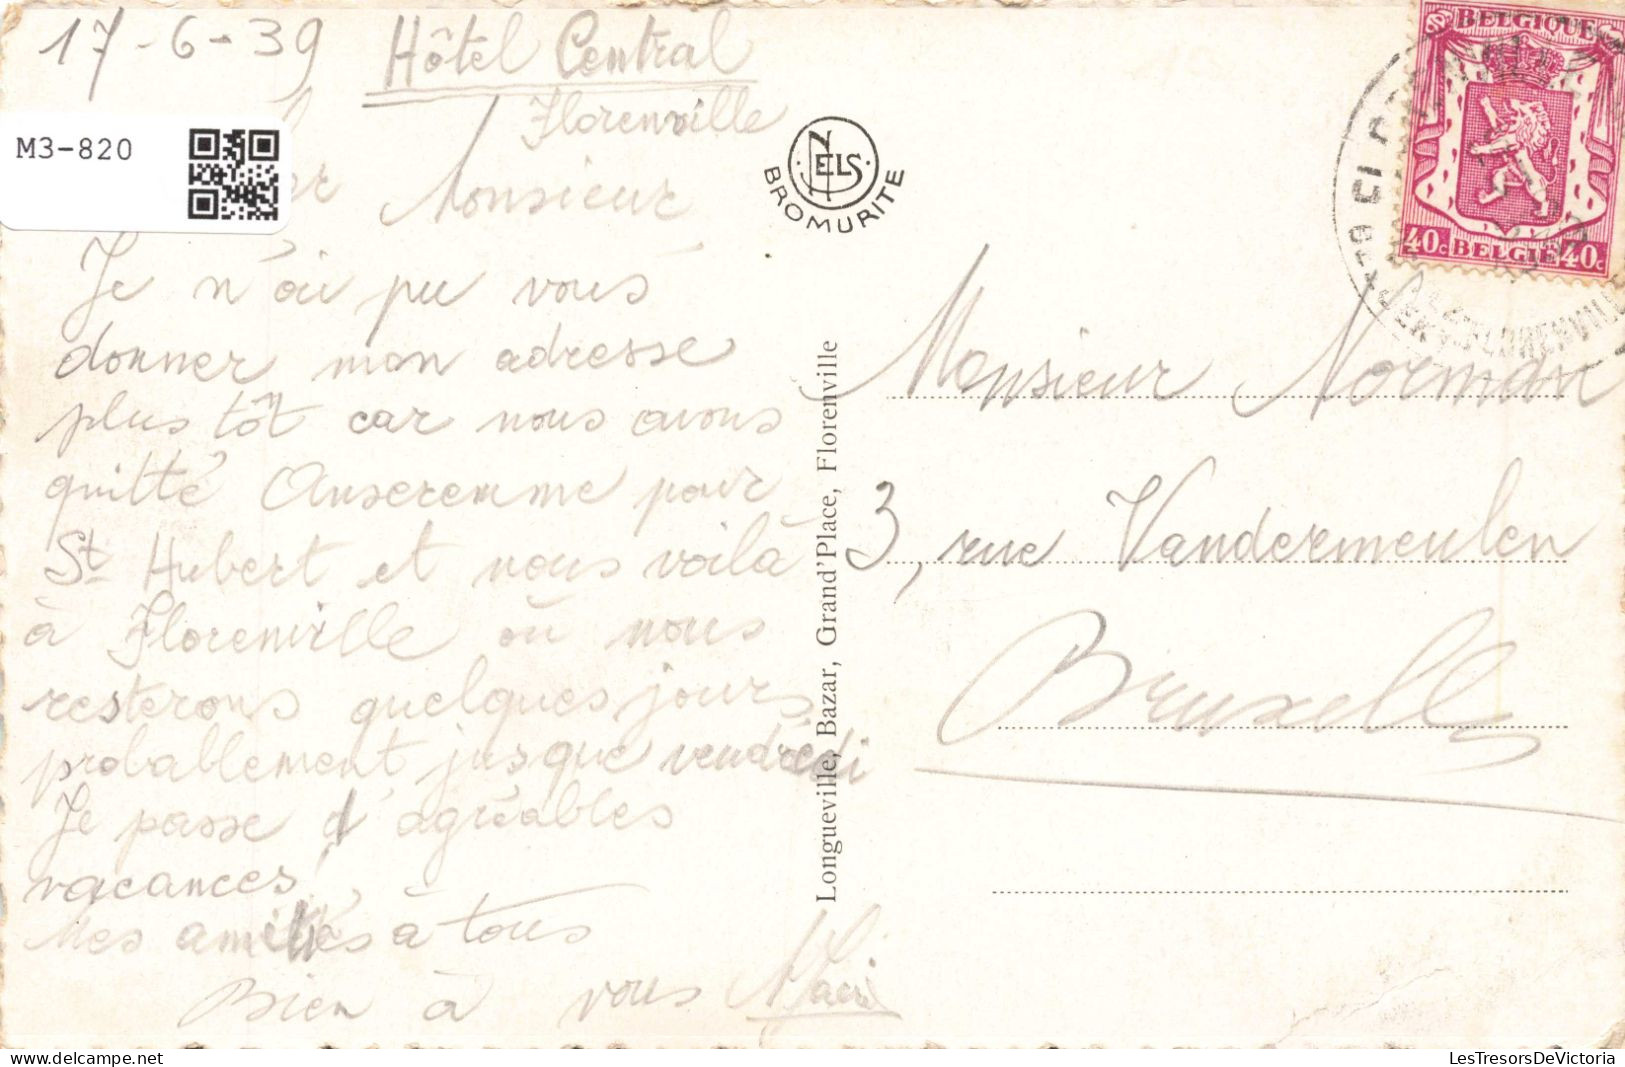 17-6-39 Hôtel Central
Florenville
M3-820
Monsieur
Je n'ai pu vous
donner mon adresse
plus tôt car nous avons
quitté Anseremme pour
St Hubert et nous voilà
à Florenville où nous
resterons quelques jours
probablement jusque vendredi
Je passe d'agréables
vacances
Mes amitiés à tous
Bien à vous
NELS
BROMURITE
Longueville, Bazar, Grand'Place, Florenville
BELGIQUE
40c BELGIE 40c
FLORENVILLE
Monsieur Norman
3, rue Vandermeulen
Bruxelles
LesTresorsDeVictoria